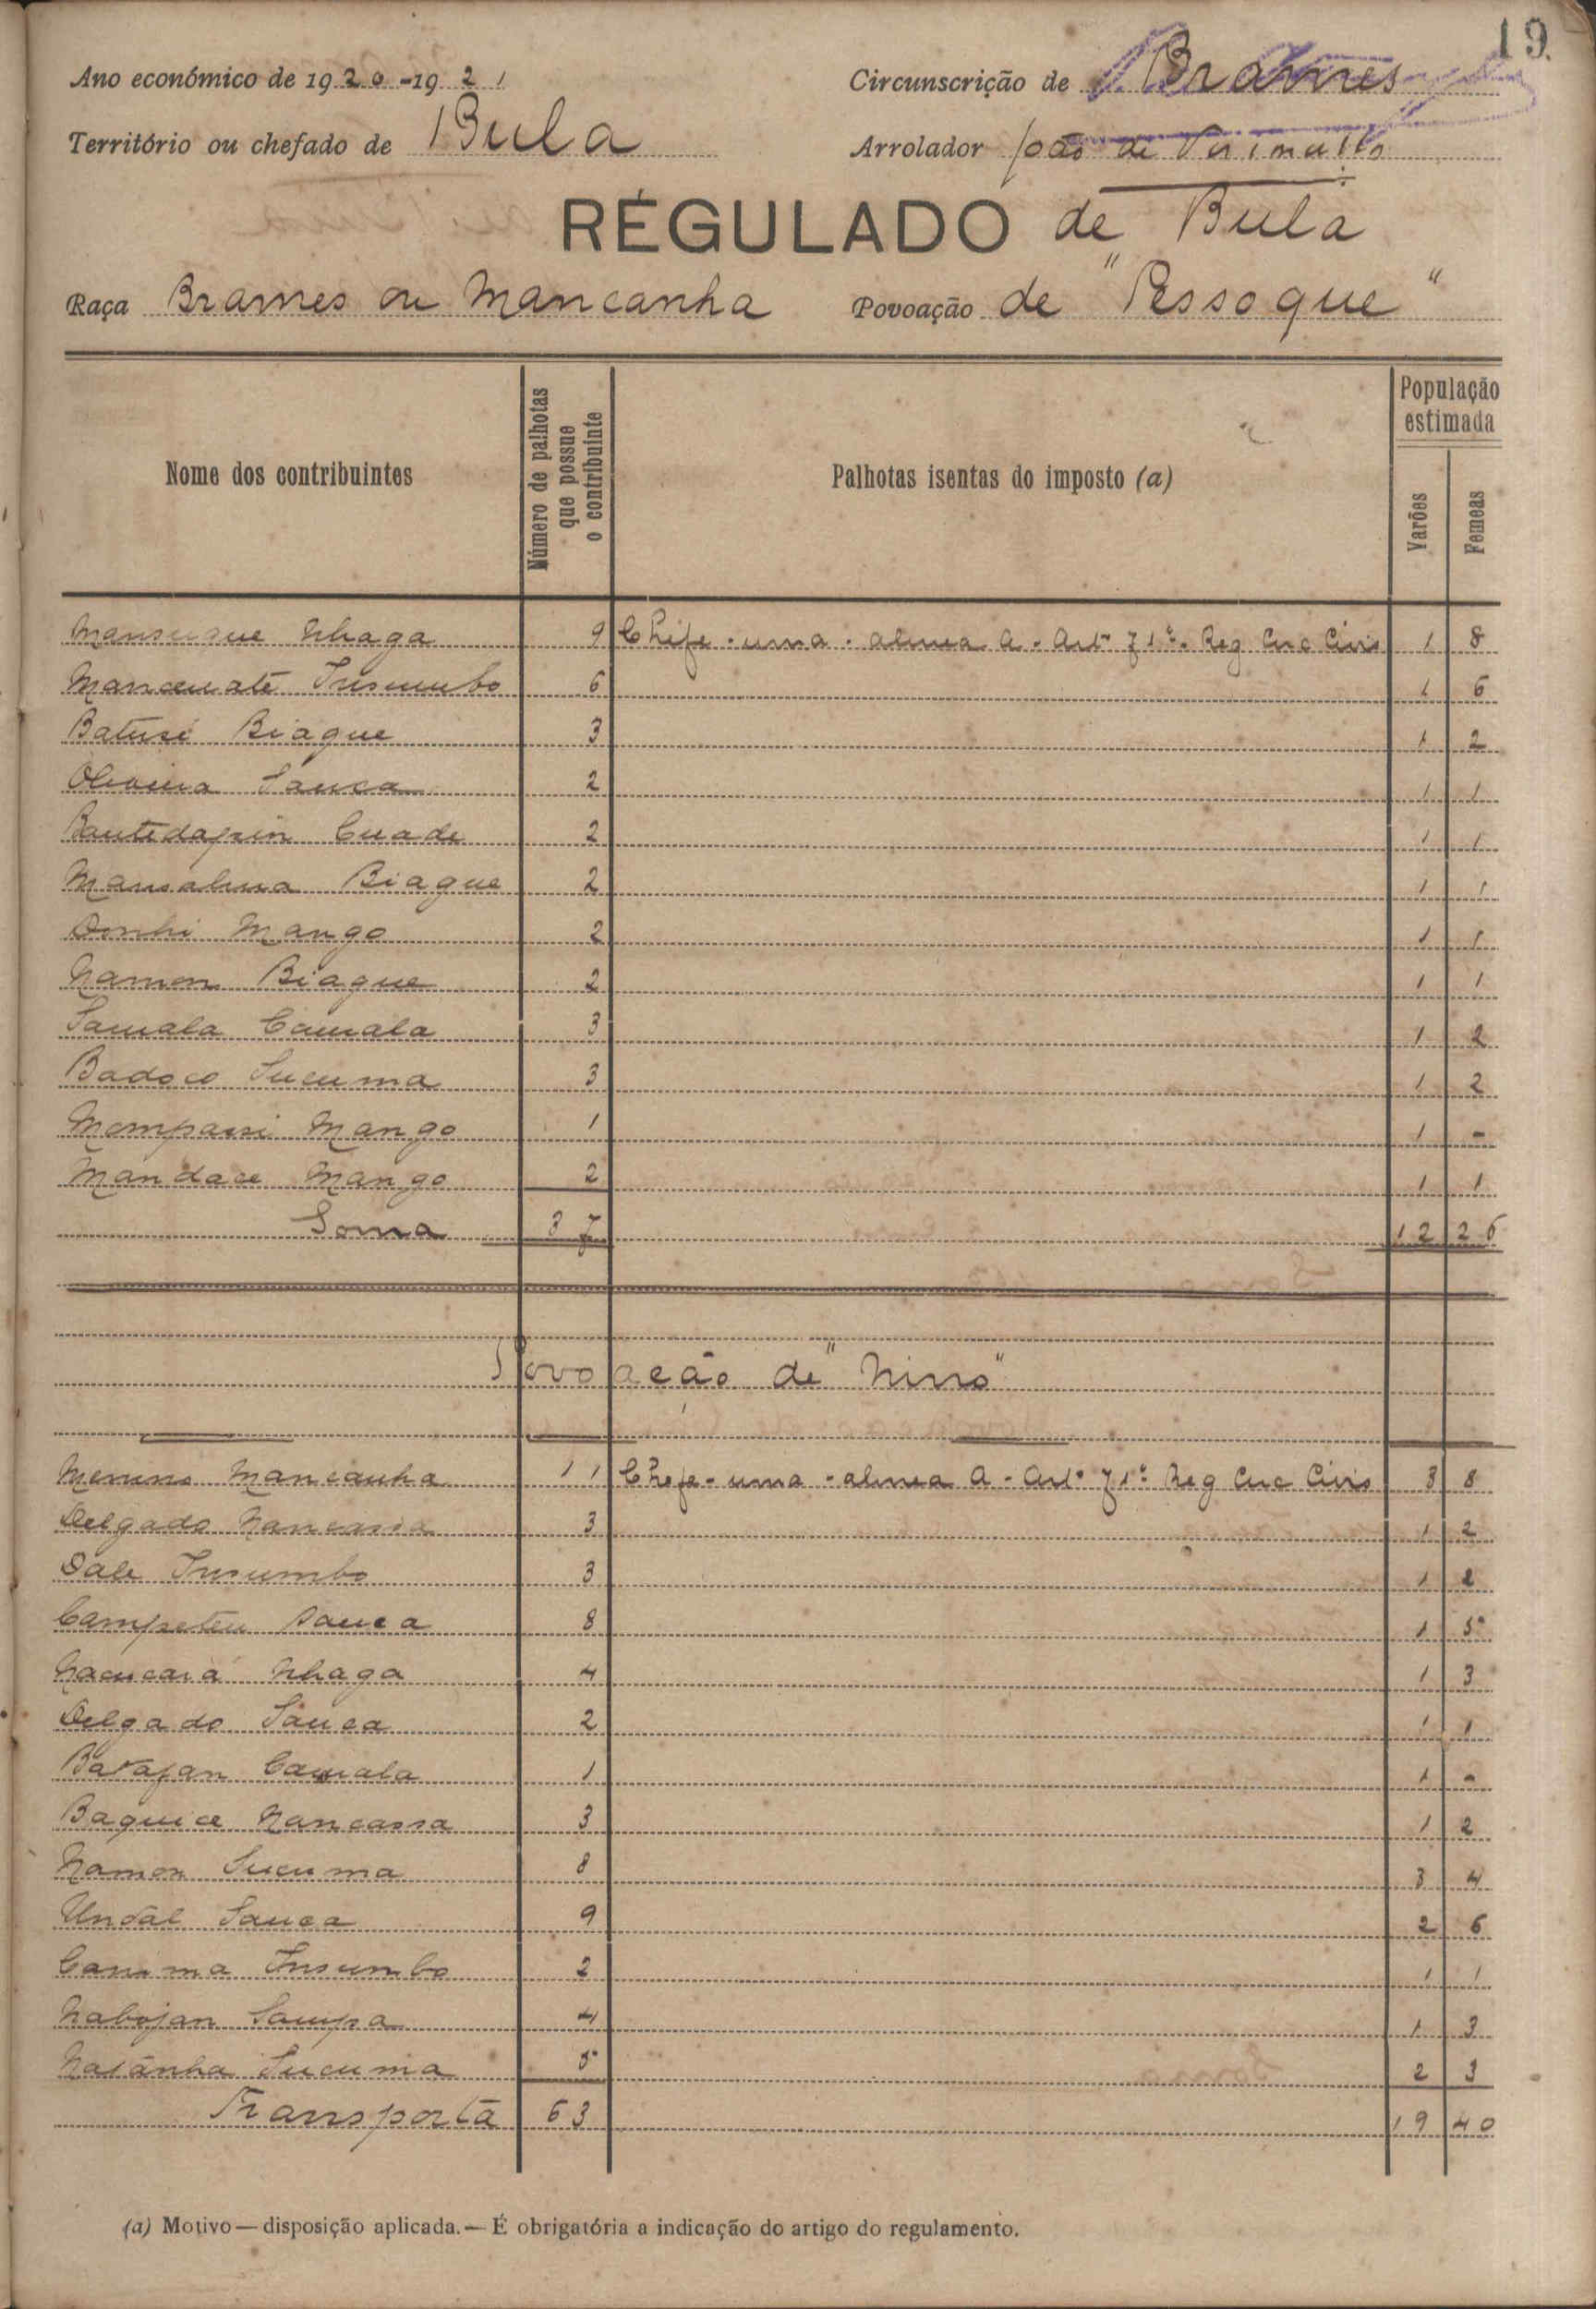 19
Ano económico de 1920-1921 Circunscrição de Brames
Território ou chefado de Bula Arrolador João de
RÉGULADO de Bula
Raça Brames ou Mancanha Povoação de "Pessoque"
Nome dos contribuintes
Número de palhotas que possue o contribuinte
Palhotas isentas do imposto (a)
População estimada
Varões Femeas
Nhaga 9 Chefe - uma - alinea A - Artº 71º - Reg Circ Civis 1 8
Insumbo 6 1 6
Batusé Biague 3 1 2
Oliveira Sanca 2 1 1
Cuade 2 1 1
Biague 2 1 1
Mango 2 1 1
Namon Biague 2 1 1
Samala Camala 3 1 2
Badoco Sucuma 3 1 2
Mompassi Mango 1 1 -
Mandace Mango 2 1 1
Soma 37 12 26
Povoação de "Nino"
Menino Mancanha 11 Chefe - uma - alinea A - Artº 71º Reg Circ Civis 3 8
Delgado Nancassa 3 1 2
Dale Insumbo 3 1 2
Campeteu Sanca 8 1 5
Nacucará Nhaga 4 1 3
Delgado Sanca 2 1 1
Camala 1 1 -
Baquice Nancassa 3 1 2
Namon Sucuma 8 3 4
Undal Sanca 9 2 6
Canima Insumbo 2 1 1
Nabojan Sampa 4 1 3
Natanha Sucuma 5 2 3
Transporta 63 19 40
(a) Motivo — disposição aplicada. — É obrigatória a indicação do artigo do regulamento.